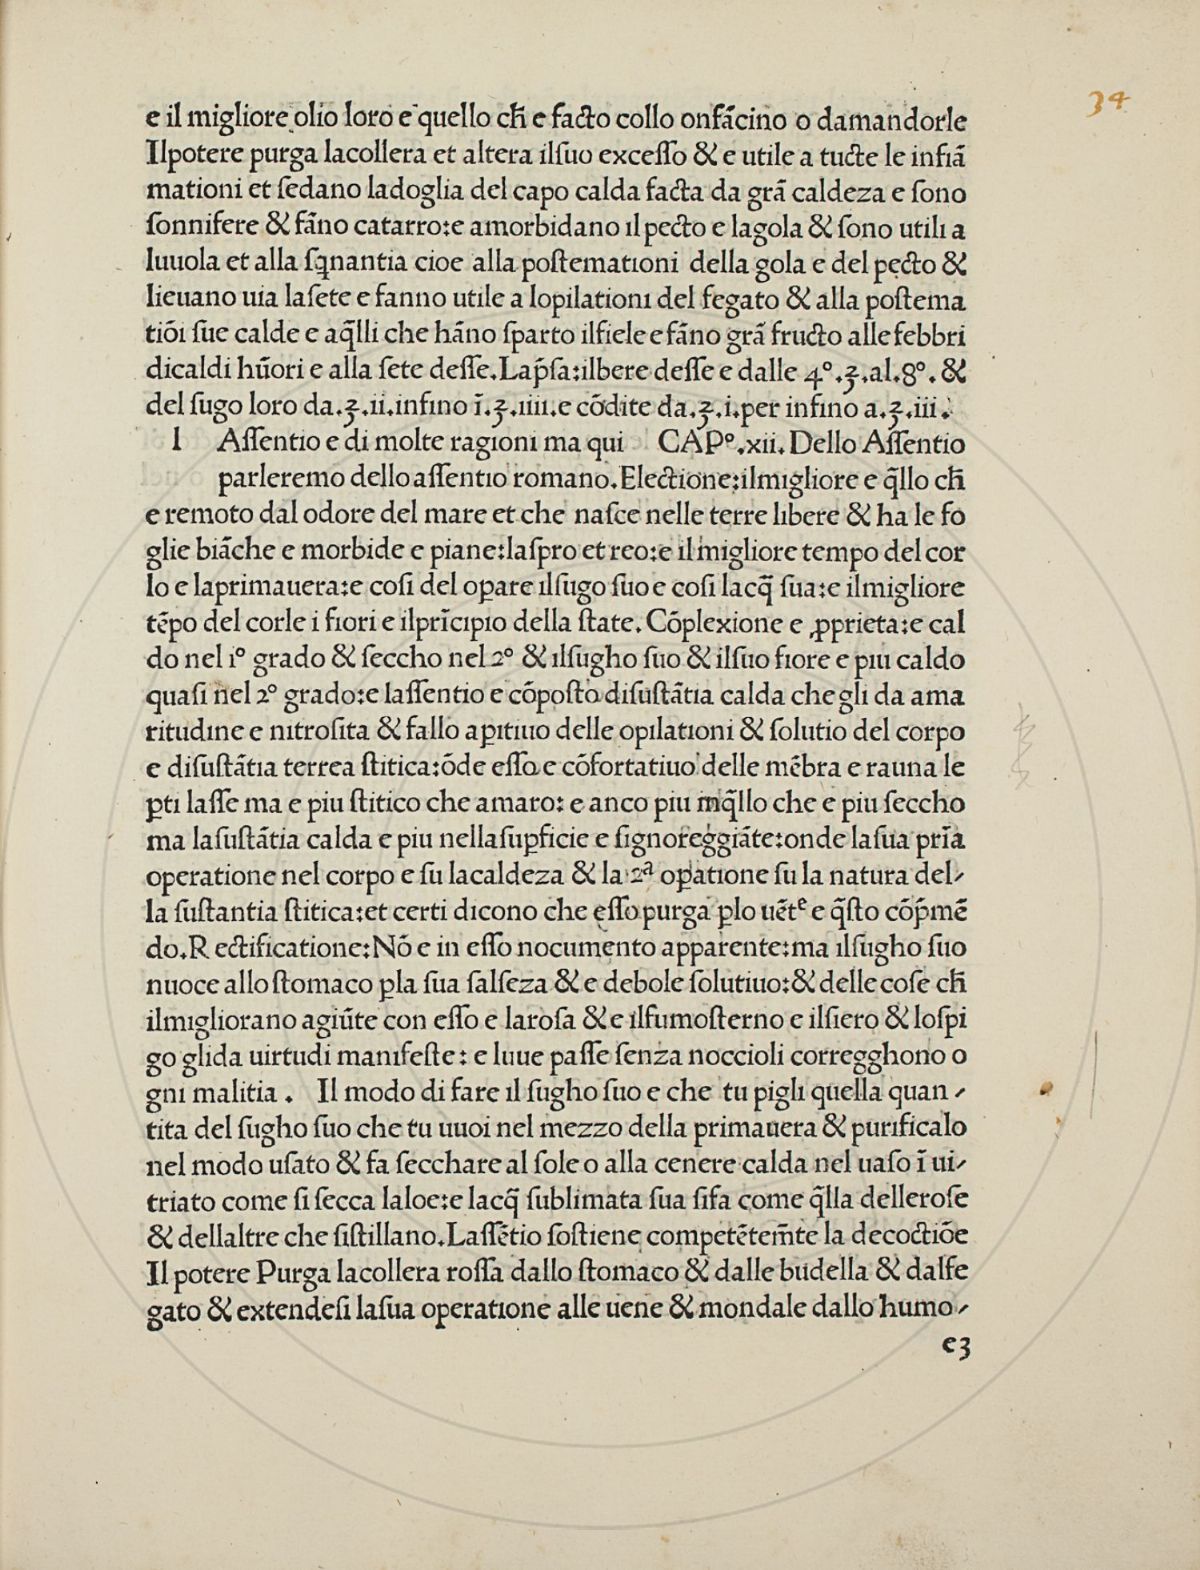 34
e il migliore olio loro e quello ch̄ e facto collo onfācino o damandorle
Ilpotere purga lacollera et altera ilſuo exceſſo & e utile a tucte le infiā
mationi et ſedano ladoglia del capo calda facta da grā caldeza e ſono
ſonnifere & fāno catarro:e amorbidano il pecto e lagola & ſono utili a
luuola et alla ſq̄nantia cioe alla poſtemationi della gola e del pecto &
lieuano uia laſete e fanno utile a lopilationi del fegato & alla poſtema
tiōi ſue calde e aq̄lli che hāno ſparto ilfiele e fāno grā fructo alle febbri
dicaldi hūori e alla ſete deſſe.Lap̄ſa:ilbere deſſe e dalle 4°.ʒ.al.8°.&
del ſugo loro da.ʒ.ii.infino ī.ʒ.iiii.e cōdite da.ʒ.i.per infino a.ʒ.iii.
l Aſſentio e di molte ragioni ma qui CAP°.xii.Dello Aſſentio
parleremo dello aſſentio romano.Electione:ilmigliore e q̄llo ch̄
e remoto dal odore del mare et che naſce nelle terre libere & ha le fo
glie biāche e morbide e piane:laſpro et reo:e il migliore tempo del cor
lo e laprimauera:e coſi del oꝑare ilſugo ſuo e coſi lacq̄ ſua:e ilmigliore
tēpo del corle i fiori e ilprīcipio della ſtate.Cōplexione e ꝓprieta:e cal
do nel i° grado & ſeccho nel 2° & ilſugho ſuo & ilſuo fiore e piu caldo
quaſi nel 2° grado:e laſſentio e cōpoſto diſuſtātia calda che gli da ama
ritudine e nitroſita & fallo aꝑitiuo delle opilationi & ſolutio del corpo
e diſuſtātia terrea ſtitica:ōde eſſo e cōfortatiuo delle mēbra e rauna le
ꝑti laſſe ma e piu ſtitico che amaro: e anco piu inq̄llo che e piu ſeccho
ma laſuſtātia calda e piu nellaſuꝑficie e ſignoreggiāte:onde laſua prīa
operatione nel corpo e ſu lacaldeza & la 2ª oꝑatione ſu la natura del⸗
la ſuſtantia ſtitica:et certi dicono che eſſo purga ꝑlo uētᵉ e q̄ſto cōp̄mē
do.Rectificatione:Nō e in eſſo nocumento apparente:ma ilſugho ſuo
nuoce allo ſtomaco ꝑla ſua ſalſeza & e debole ſolutiuo:& delle coſe ch̄
ilmigliorano agiūte con eſſo e laroſa & e ilfumoſterno e ilſiero & loſpi
go glida uirtudi manifeſte: e luue paſſe ſenza noccioli corregghono o
gni malitia . Il modo di fare il ſugho ſuo e che tu pigli quella quan⸗
tita del ſugho ſuo che tu uuoi nel mezzo della primauera & purificalo
nel modo uſato & fa ſecchare al ſole o alla cenere calda nel uaſo ī ui⸗
triato come ſi ſecca laloe:e lacq̄ ſublimata ſua ſifa come q̄lla delleroſe
& dellaltre che ſiſtillano.Laſſētio ſoſtiene competētem̄te la decoctiōe
Il potere Purga lacollera roſſa dallo ſtomaco & dalle budella & dalfe
gato & extendeſi laſua operatione alle uene & mondale dallo humo⸗
e3